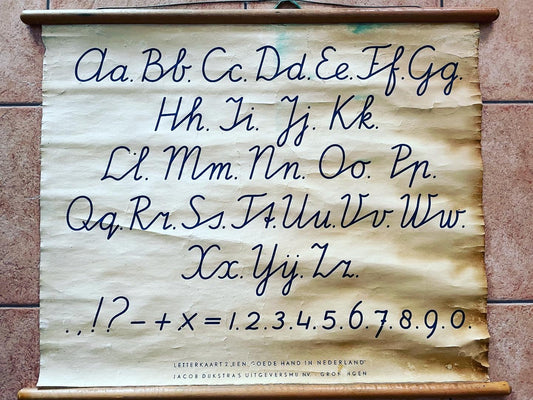 Aa. Bb. Cc. Dd. Ee. Ff. Gg.
Hh. Ii. Jj. Kk.
Ll. Mm. Nn. Oo. Pp.
Qq. Rr. Ss. Tt. Uu. Vv. Ww.
Xx. Yij. Zz.
. , ! ? – + × = 1. 2. 3. 4. 5. 6. 7. 8. 9. 0.
LETTERKAART 2 „EEN GOEDE HAND IN NEDERLAND"
JACOB DIJKSTRA'S UITGEVERSMIJ NV - GRON NGEN